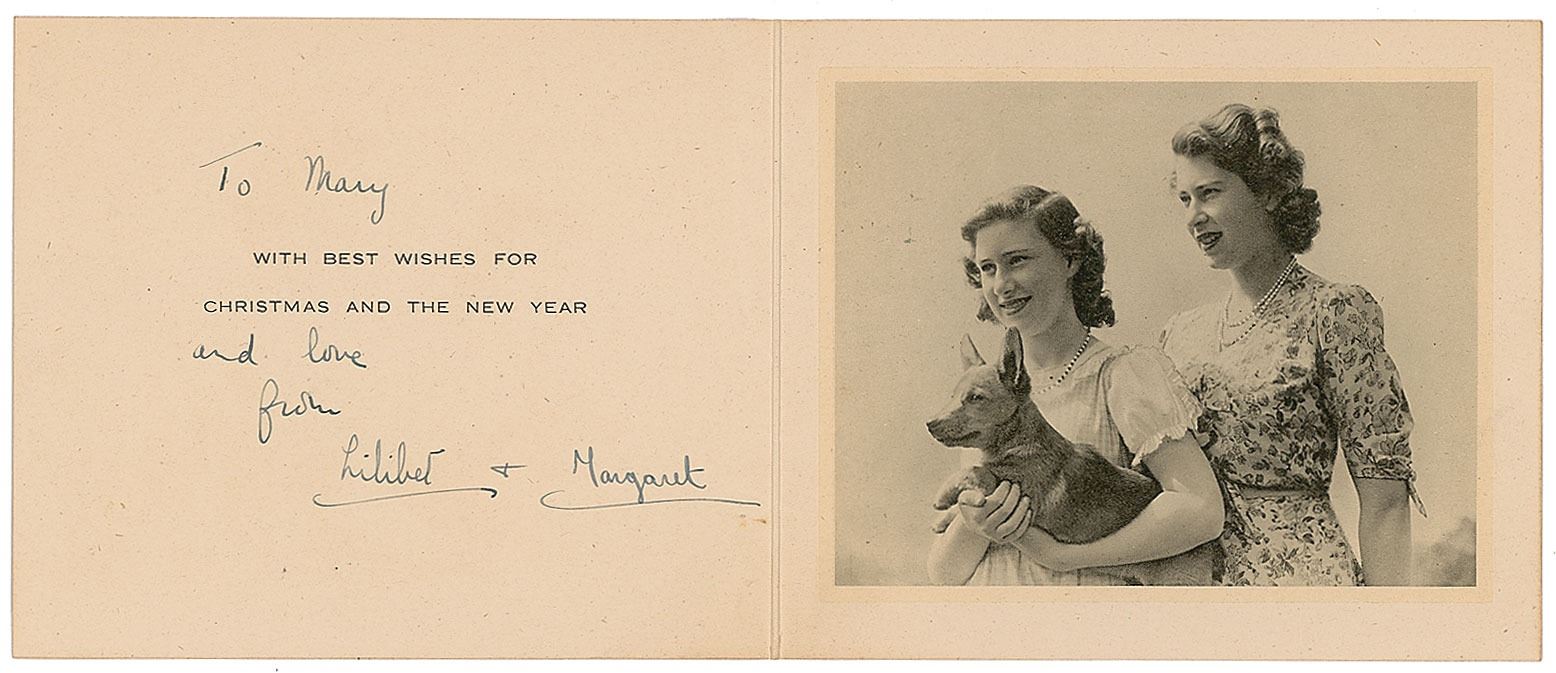 To Mary
WITH BEST WISHES FOR
CHRISTMAS AND THE NEW YEAR
and love
from
Lilibet + Margaret